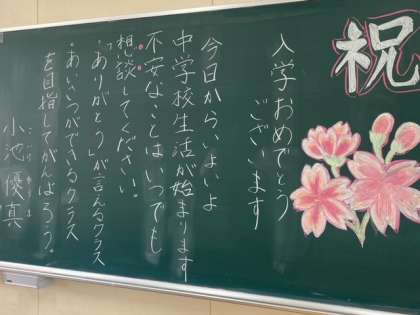 祝
入学おめでとう
ございます
今日から、いよいよ
中学校生活が始まります
不安なことはいつでも
相談してください。
・「ありがとう」が言えるクラス
・あいさつができるクラス
を目指してがんばろう。
小池優真